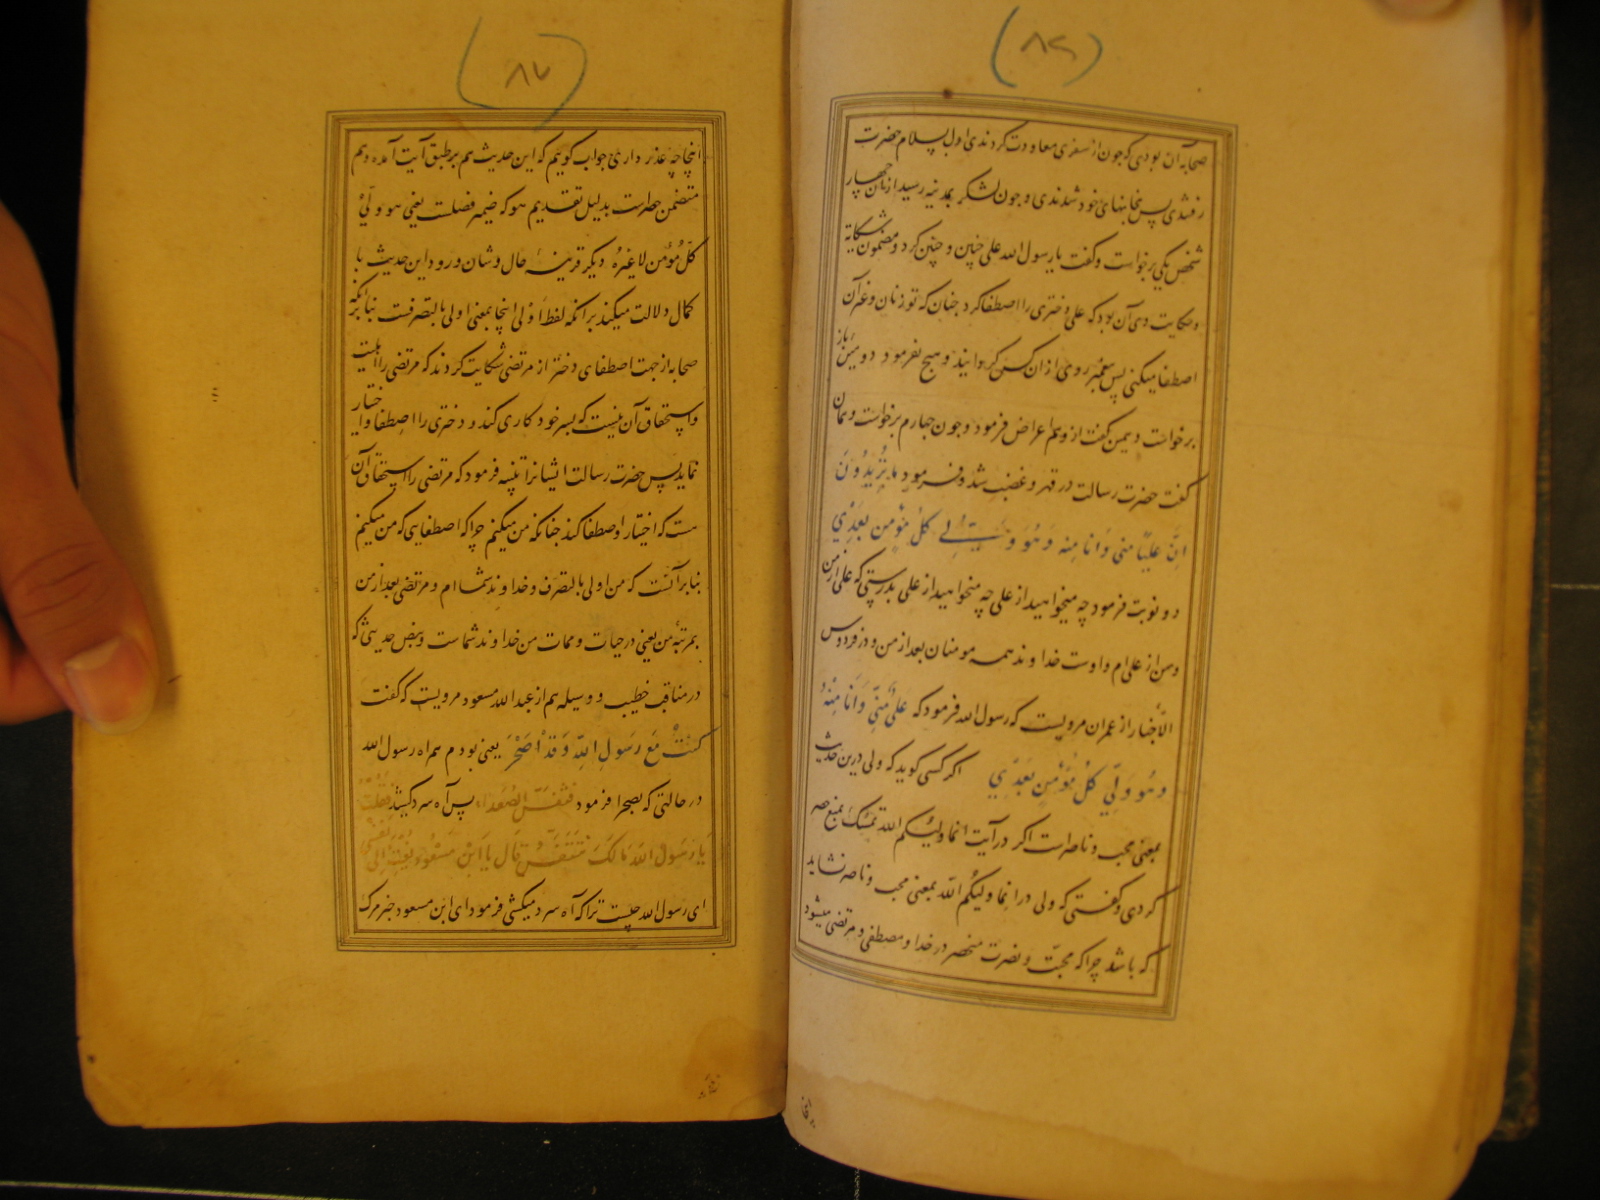 (۸۶)
صحابه آن بودی که چون از سفری معاودت کردندی اول بسلام حضرت
رفتندی پس بخانهای خود شدندی و چون لشکر بمدینه رسید از آن چهار
شخص یکی برخواست و گفت یا رسول الله علی چنین و چنین کرد و مضمون شکایة
و حکایت وی آن بود که علی دختری را اصطفا کرد چنان که تو زنان و غیر آن
اصطفا میکنی پس پیغمبر روی از آن کس گردانید و هیچ نفرمود دومین باز
برخواست و سیمن گفت از و هم اعراض فرمود و چون چهارم برخواست و همان
گفت حضرت رسالت در قهر و غضب شد و فرمود ما تُرِیدُونَ
اِنَّ عَلِیًّا مِنِّی وَاَنَا مِنهُ وَهُوَ وَلِیُّ کُلِّ مُؤمِنٍ بَعدِی
دو نوبت فرمود چه میخواهید از علی چه میخواهید از علی بدرستی که علی از من
و من از علی‌ام و اوست خداوند همه مومنان بعد از من و در فردوس
الاخبار از عمران مرویست که رسول الله فرمود که عَلِیٌّ مِنِّی وَاَنَا مِنهُ
وَهُوَ وَلِیُّ کُلِّ مُؤمِنٍ بَعدِی اگر کسی گوید که ولی درین حدیث
بمعنی محب و ناصر است اگر در آیت انما ولیکم الله تمسک بمنع حصر
کردی و گفتی که ولی در انما ولیکم الله بمعنی محب و ناصر نشاید
که باشد چرا که محبت و نصرت منحصر در خدا و مصطفی و مرتضی میشود
(۸۷)
اینجا چه عذر داری جواب گویم که این حدیث هم بر طبق آیت آمده و هم
متضمن حصر است بدلیل تقدیم هو که ضمیر فصلست یعنی هو ولیّ
کل مؤمن لا غیره دیگر قرینه حال و شان ورود این حدیث با
کمال دلالت میکند بر آنکه لفظ اولی اینجا بمعنی اولی بالتصرفست بنابر آنکه
صحابه از جهت اصطفای دختر از مرتضی شکایت کردند که مرتضی را اهلیت
و استحقاق آن نیست که بسر خود کاری کند و دختری را اصطفا و اختیار
نماید پس حضرت رسالت ایشانرا تنبیه فرمود که مرتضی را استحقاق آن
هست که اختیار و اصطفا کند چنانکه من میکنم چرا که اصطفایی که من میکنم
بنابر آنست که من اولی بالتصرف و خداوند شماام و مرتضی بعد از من
بمرتبه من یعنی در حیات و ممات من خداوند شماست و بنص حدیثی که
در مناقب خطیب و وسیله هم از عبد الله مسعود مرویست که گفت
کُنتُ مَعَ رَسُولِ اللهِ وَقَد اَصحَرَ یعنی بودم همراه رسول الله
در حالتی که بصحرا فرمود فَتَنَفَّسَ الصُّعَداءَ پس آه سرد کشید فَقُلتُ
یَا رَسُولَ اللهِ مَالَکَ تَتَنَفَّسُ قَالَ یَا ابنَ مَسعُودٍ نُعِیَت اِلَیَّ نَفسِی
ای رسول الله چیست تو را که آه سرد میکشی فرمود ای ابن مسعود خبر مرگ